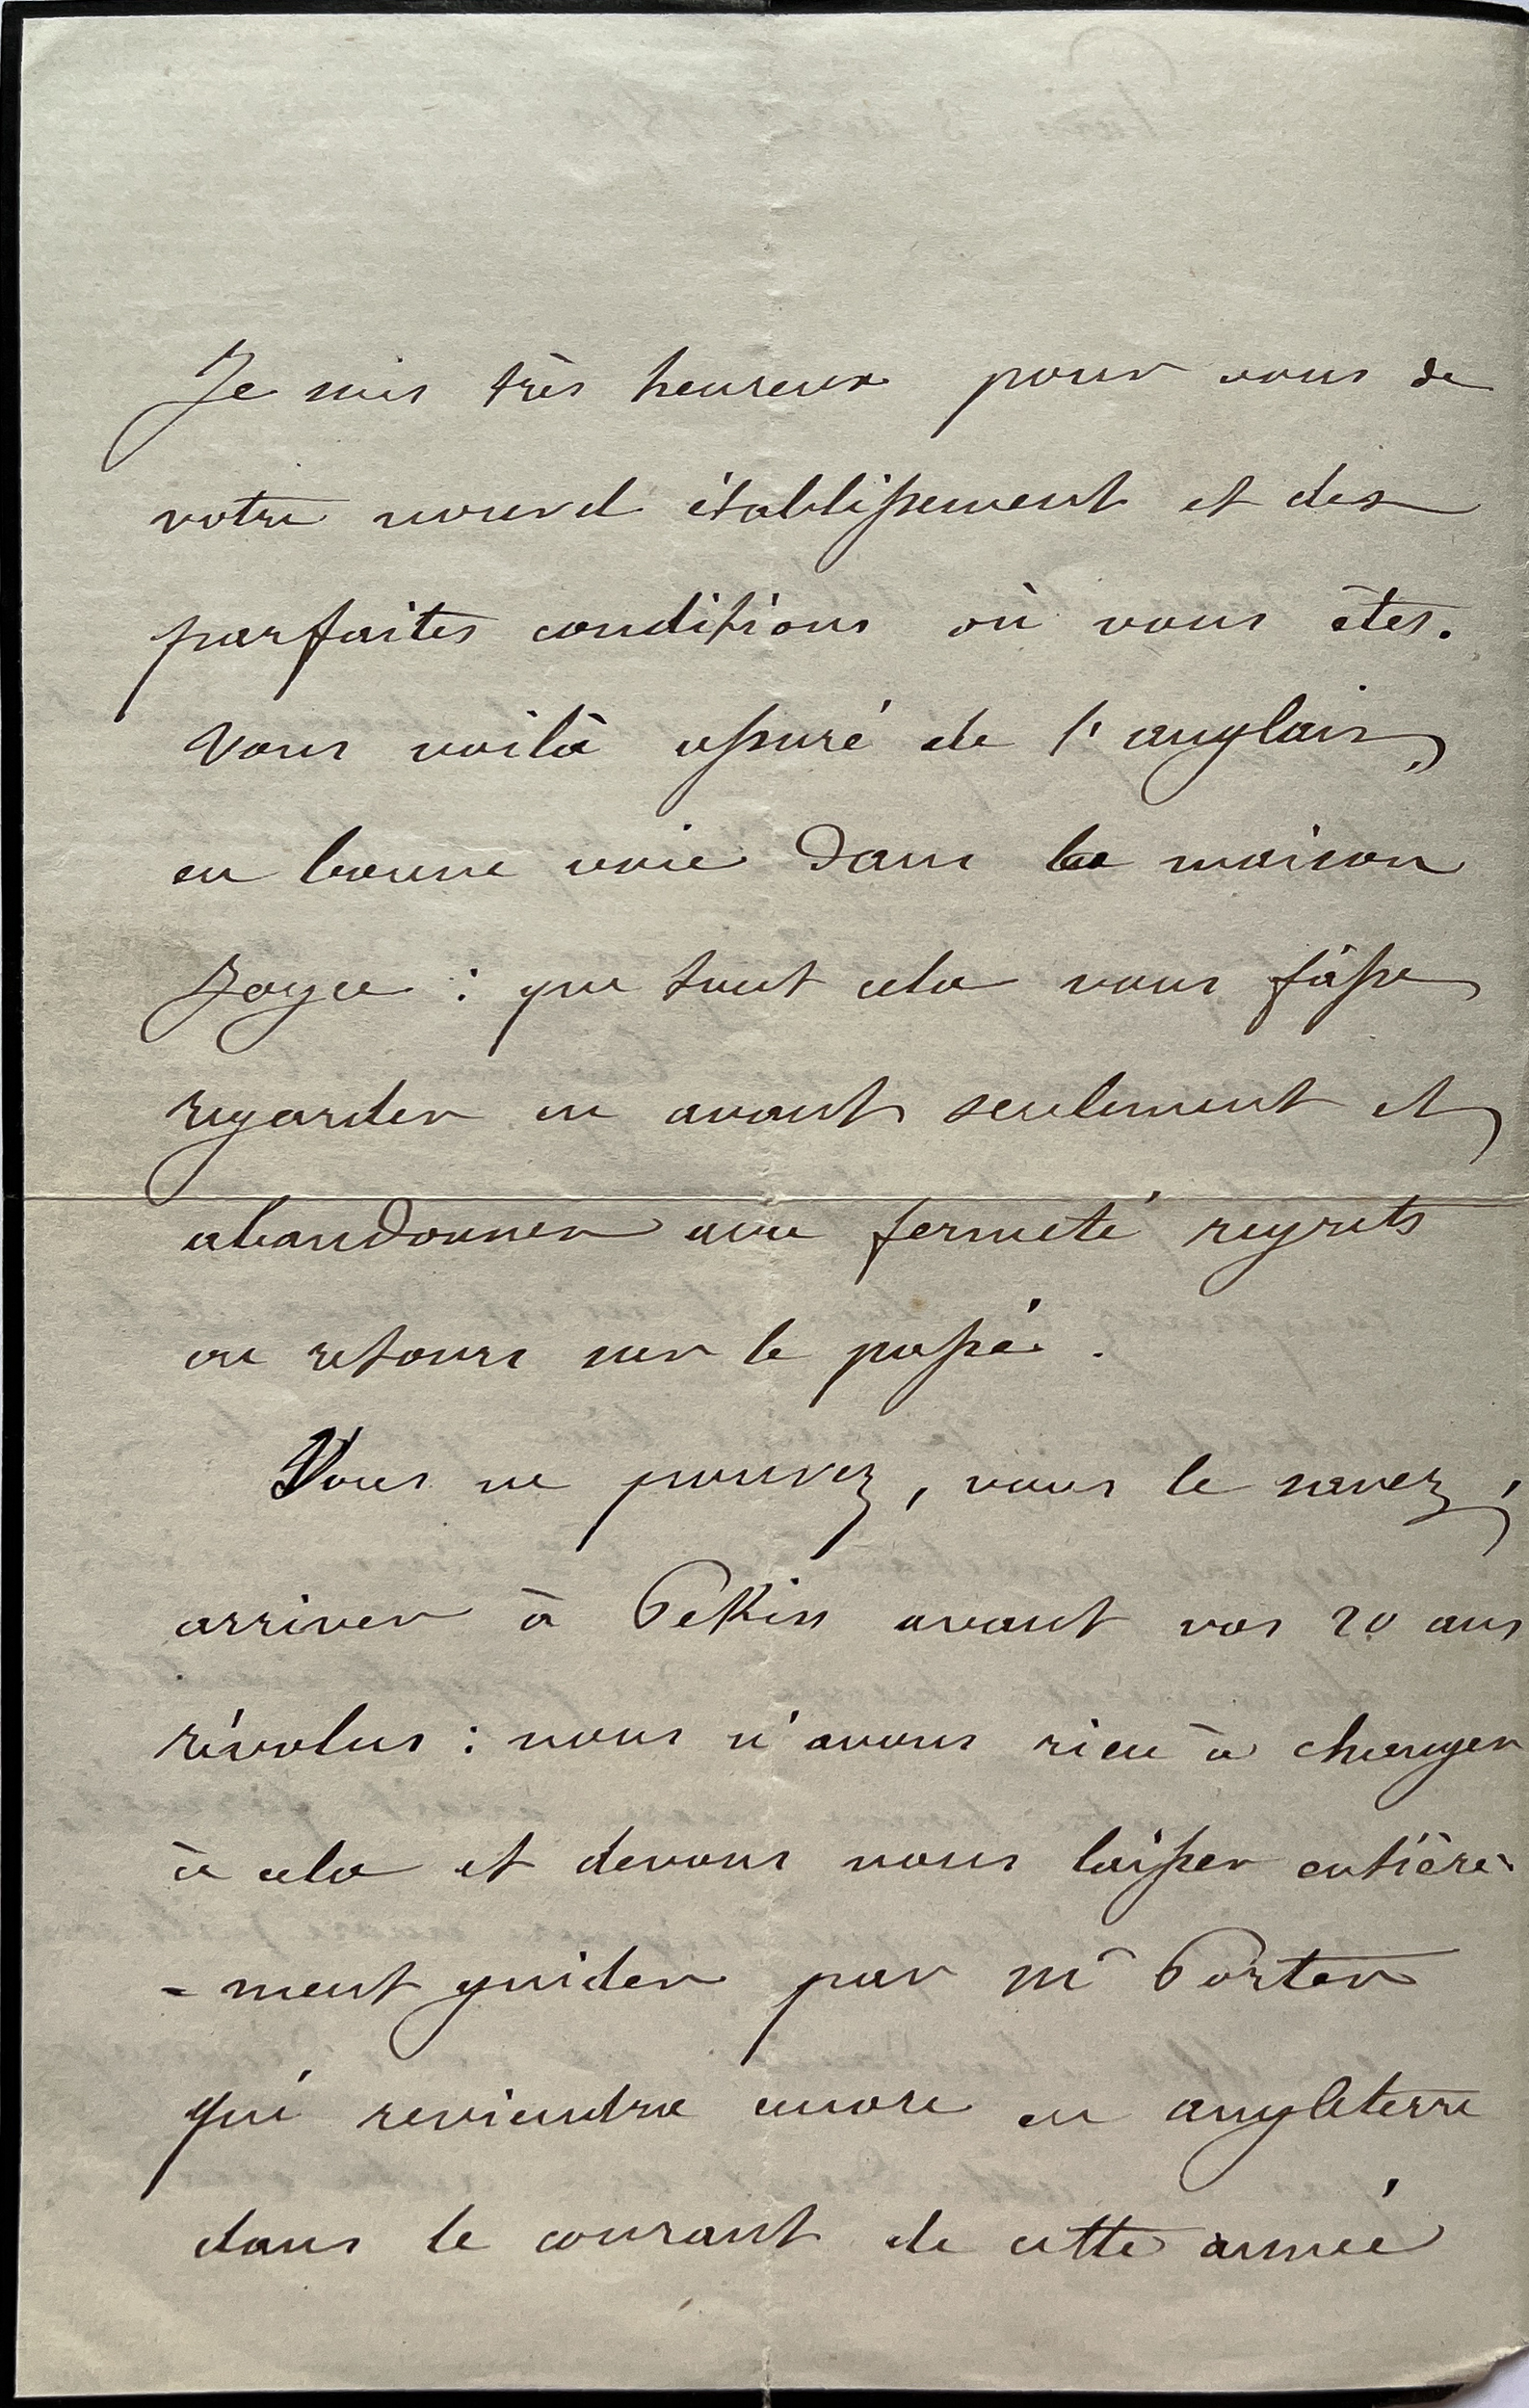 Je suis très heureux pour vous de
votre nouvel établissement et des
parfaites conditions où vous êtes.
Vous voilà assuré de l'anglais,
en bonne voie dans la maison
Joyce : que tout cela vous fasse
regarder en avant seulement et
abandonner avec fermeté regrets
ou retours sur le passé.
Vous ne pouvez, vous le savez,
arriver à Pekin avant vos 20 ans
révolus : nous n'avons rien à changer
à cela et devons nous laisser entière-
-ment guider par Mr Porter
qui reviendra encore en angleterre
dans le courant de cette année